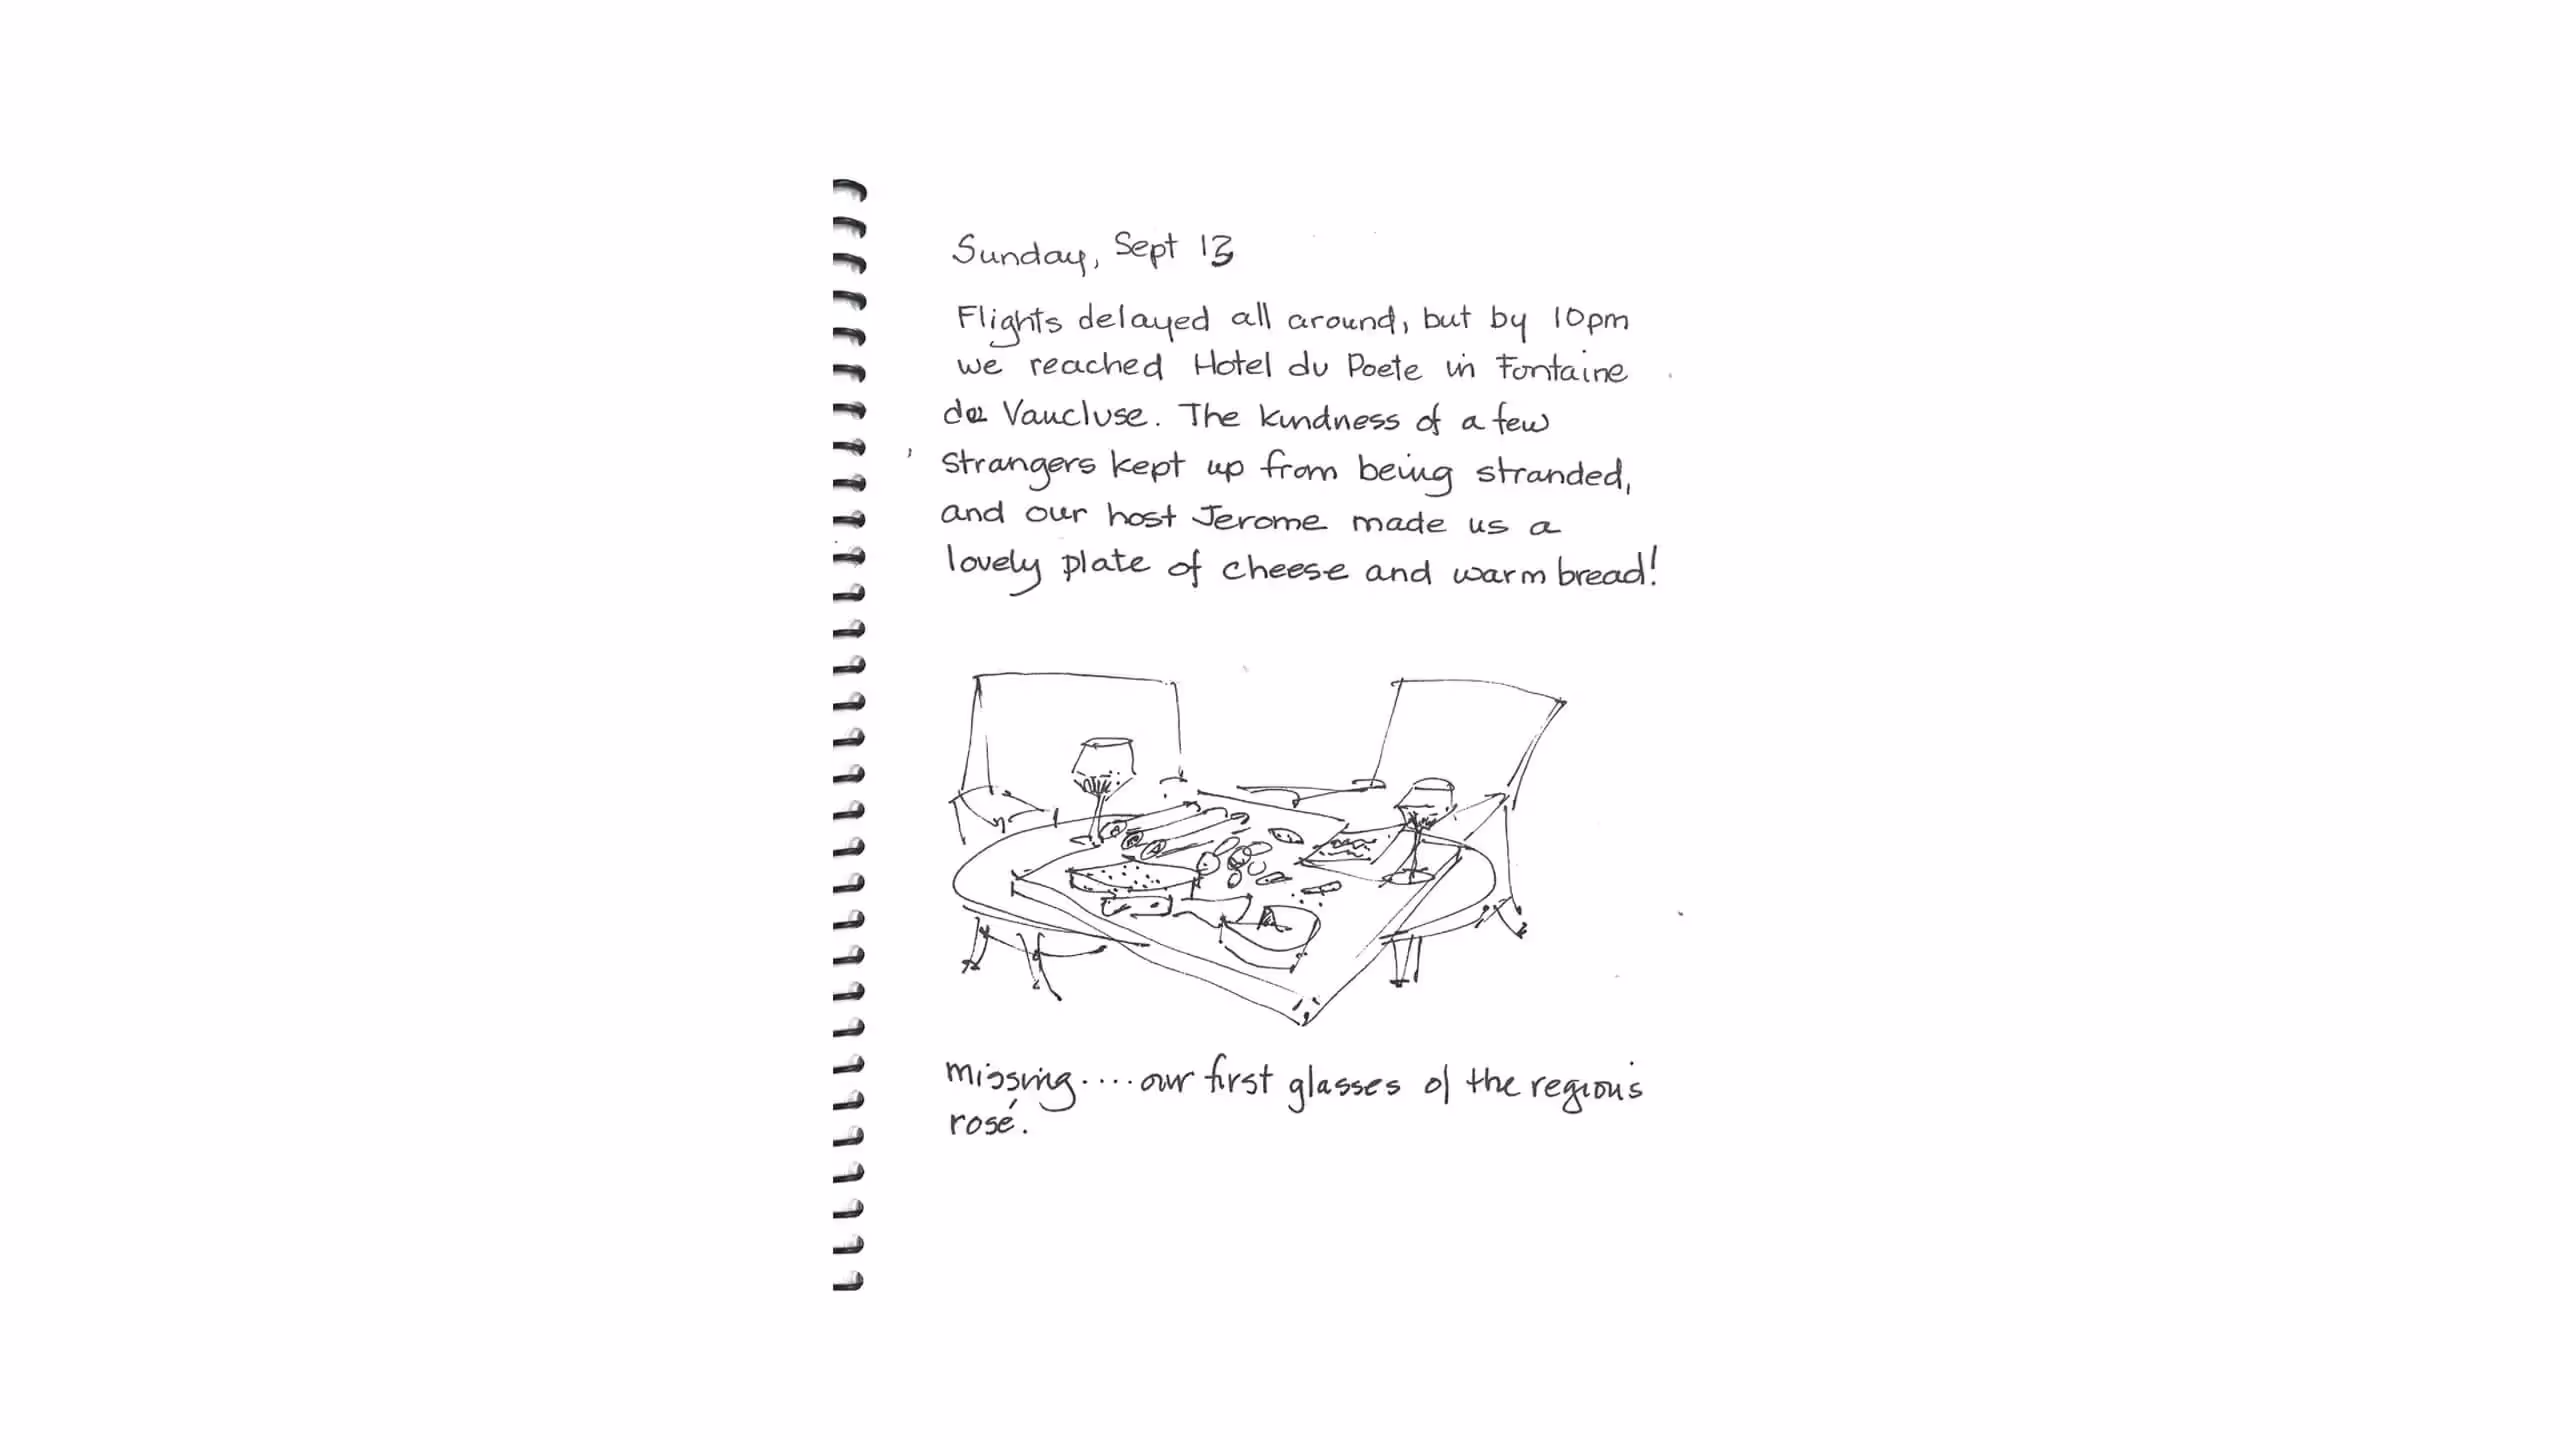 Sunday, Sept 13
Flights delayed all around, but by 10pm
we reached Hotel du Poete in Fontaine
de Vaucluse. The kindness of a few
strangers kept up from being stranded,
and our host Jerome made us a
lovely plate of cheese and warm bread!
missing.... our first glasses of the region's
rosé.